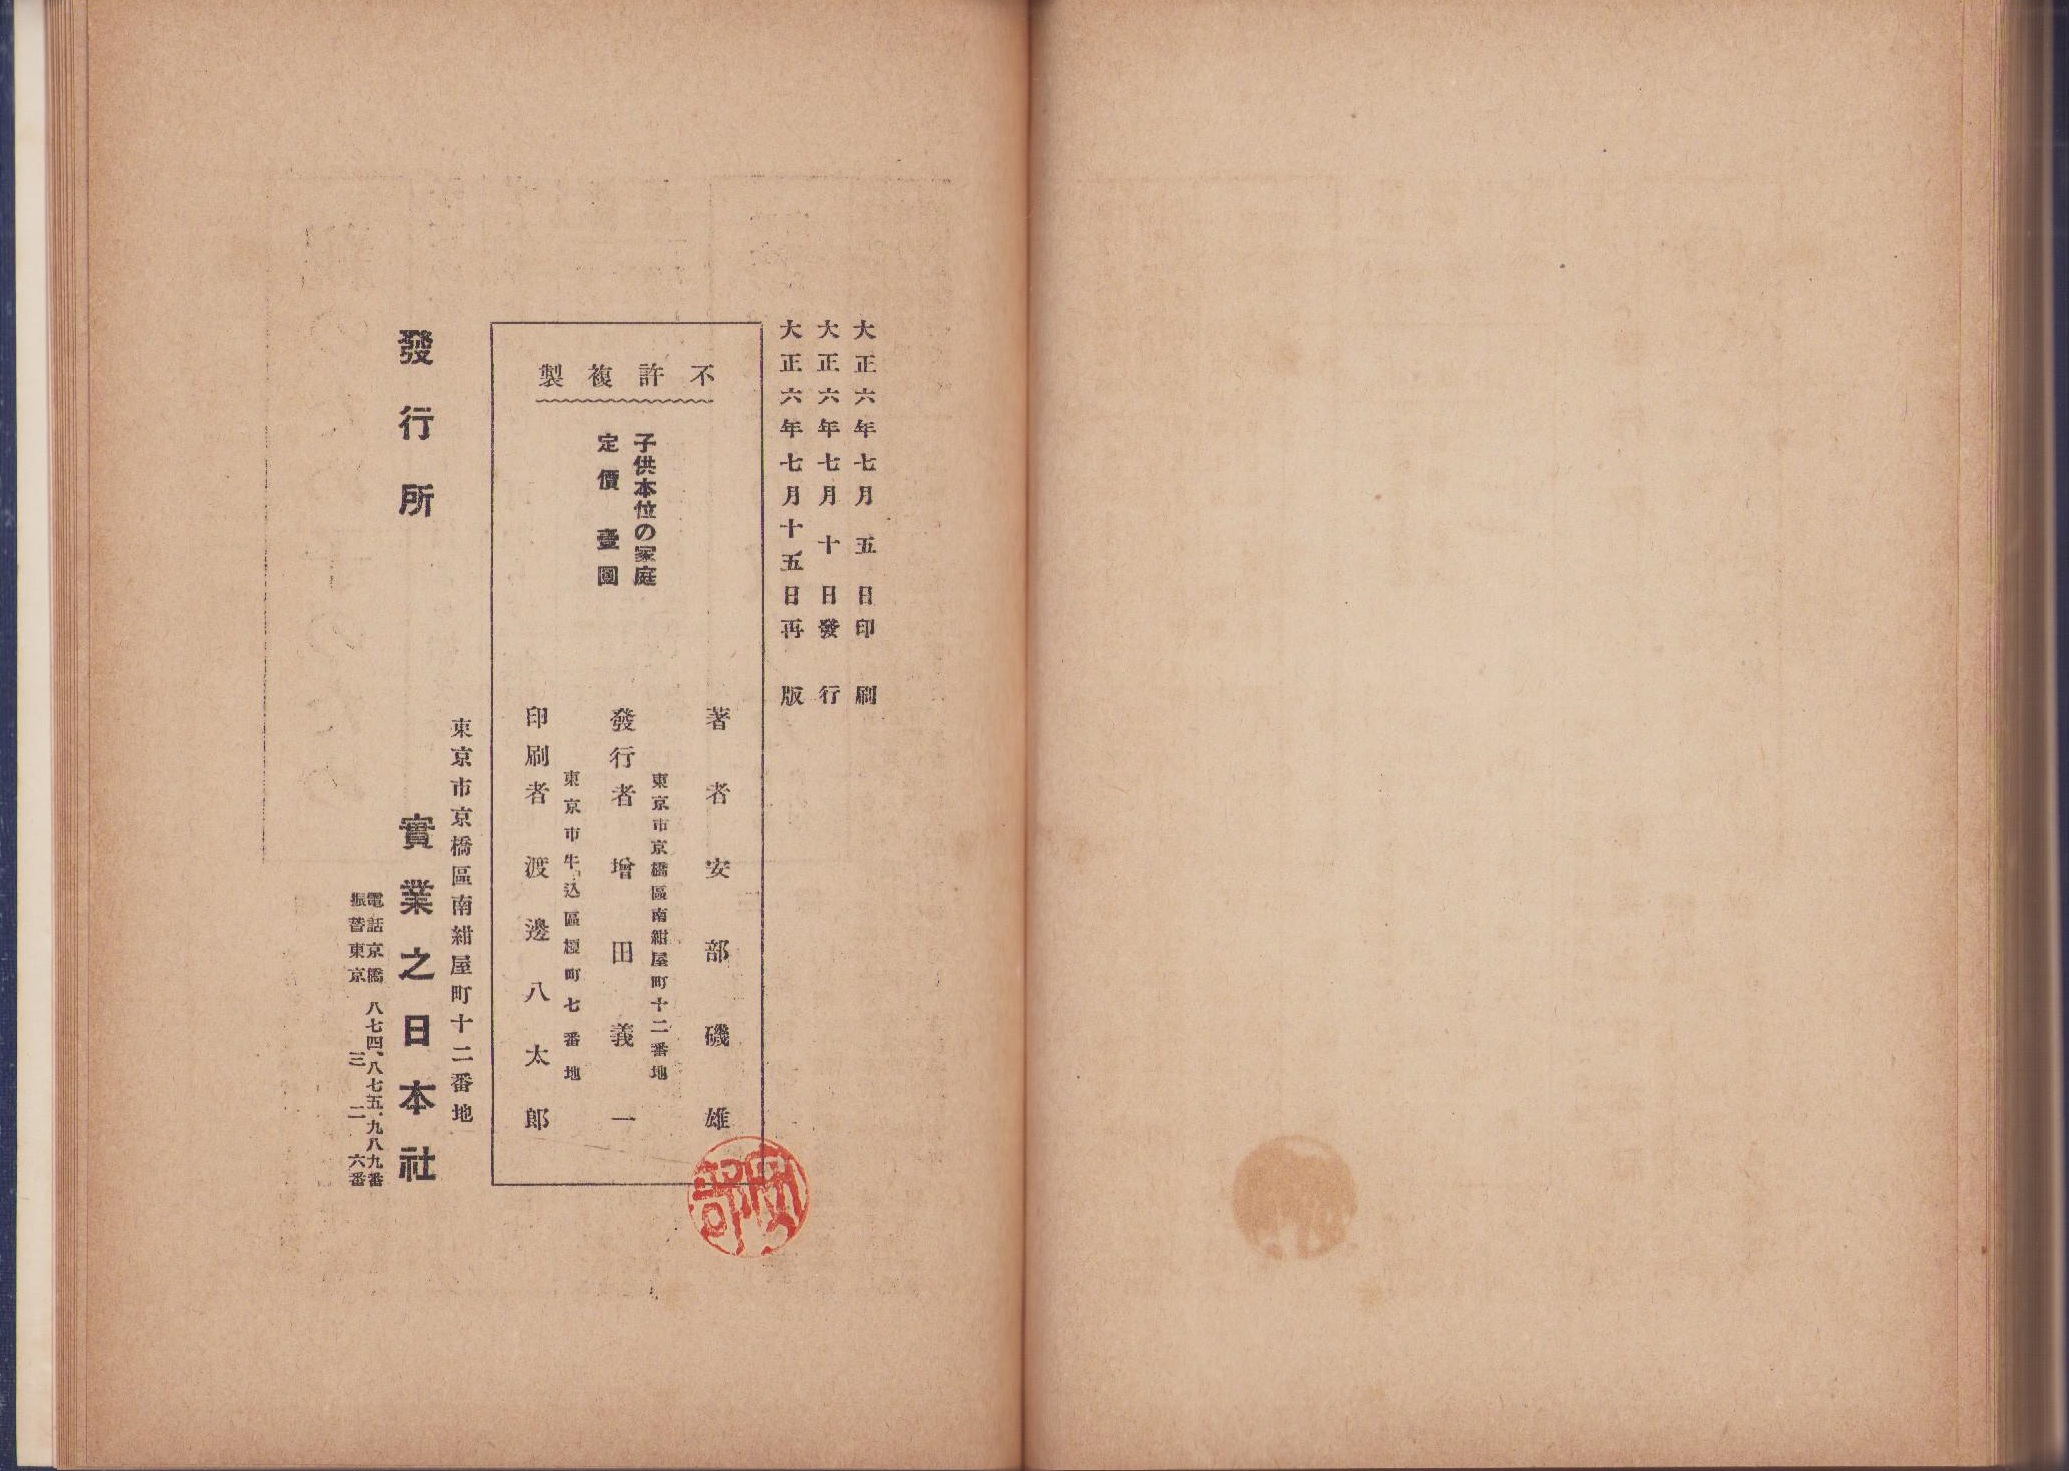 大正六年七月五日印刷
大正六年七月十日發行
大正六年七月十五日再版
不許複製
子供本位の家庭
定價壹圓
著者安部磯雄
安部
東京市京橋區南紺屋町十二番地
發行者增田義一
東京市牛込區榎町七番地
印刷者渡邊八太郎
東京市京橋區南紺屋町十二番地
發行所實業之日本社
電話京橋八七四、八七五、九八九番
振替東京三二六番